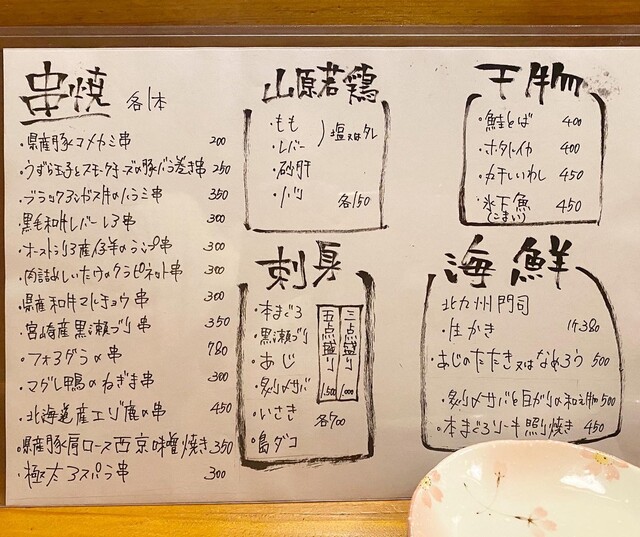 串焼 各1本
・県産豚コメカミ串 200
・うずら玉子とスモークチーズの豚バラ巻き串 250
・ブラックアンガス牛のハラミ串 350
・黒毛和牛レバーレア串 300
・オーストラリア産仔羊のランプ串 300
・肉詰めしいたけのクラピネット串 300
・県産和牛マルチョウ串 300
・宮崎産黒瀬ブリ串 350
・フォアグラの串 780
・マグレ鴨のねぎま串 300
・北海道産エゾ鹿の串 450
・県産豚肩ロース西京味噌焼き 350
・極太アスパラ串 300
山原若鶏
・もも
・レバー
・砂肝
・ハツ
塩又はタレ
各150
刺身
・本まぐろ
・黒瀬ブリ
・あじ
・炙り〆サバ
・いさき
・島ダコ
各700
三点盛り 1,000
五点盛り 1,500
干物
・鮭とば 400
・ホタルイカ 400
・カナイいわし 450
・氷下魚 450
(こまい)
海鮮
北九州門司
・生かき 1ケ380
・あじのたたき又はなめろう 500
・炙り〆サバと目がりの和え物 500
・本まぐろハーモニカ照り焼き 450